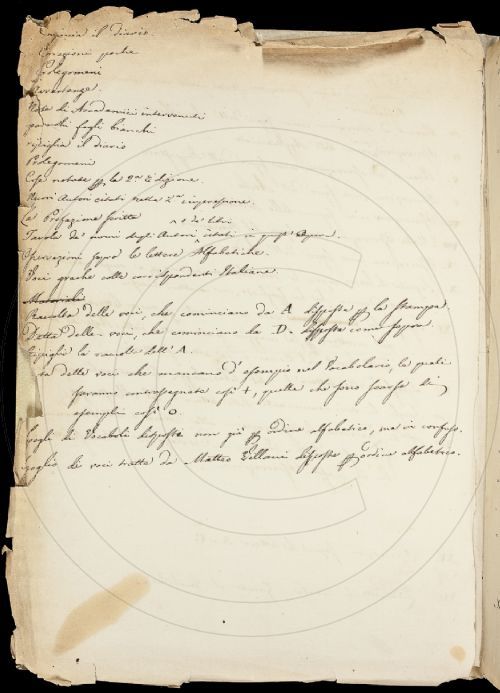 Comincia il diario.
Correzioni poche
Prolegomeni
Avvertenze.
Nota di Accademici intervenuti
parecchi fogli bianchi
ripiglia il diario
Prolegomeni
Cose notate p la 2.ª Edizione.
Nomi Autori citati nella 2.ª impressione.
La Prefazione scritta
Tavola de' nomi degli Autori ^ e de' libri citati in quest'
Operazioni sopra le lettere Alfabetiche.
Voci greche colle corrispondenti Italiane.
Materiali
Raccolta delle voci, che cominciano da A disposta p la stampa.
Detta delle voci, che cominciano la D. disposta come sopra.
Ripiglia la raccolta dell' A.
ta delle voci che mancano d' esempio nel Vocabolario, le quali
saranno contrassegnate così +, quelle che sono scarse di
esempli così o.
fogli di Vocaboli disposti non già p ordine alfabetico, ma in confuso.
foglio di voci tratte da Matteo Villani disposte p ordine alfabetico.